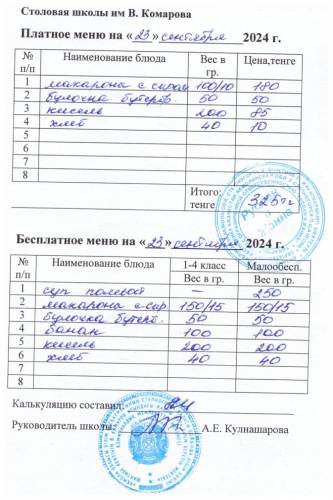 Столовая школы им В. Комарова
Платное меню на « 23 » сентября 2024 г.
№ п/п Наименование блюда Вес в гр. Цена,тенге
1 макарона с сыром 100/10 180
2 булочка бутерб. 50 50
3 кисель 200 85
4 хлеб 40 10
5
6
7
8
Итого: тенге 325тг
Бесплатное меню на « 23 » сентября 2024 г.
№ п/п Наименование блюда 1-4 класс Малообесп.
Вес в гр. Вес в гр.
1 суп полевой – 250
2 макарона с сыр. 150/15 150/15
3 булочка бутерб. 50 50
4 банан 100 100
5 кисель 200 200
6 хлеб 40 40
7
8
Калькуляцию составил:
Руководитель школы: А.Е. Кулнашарова